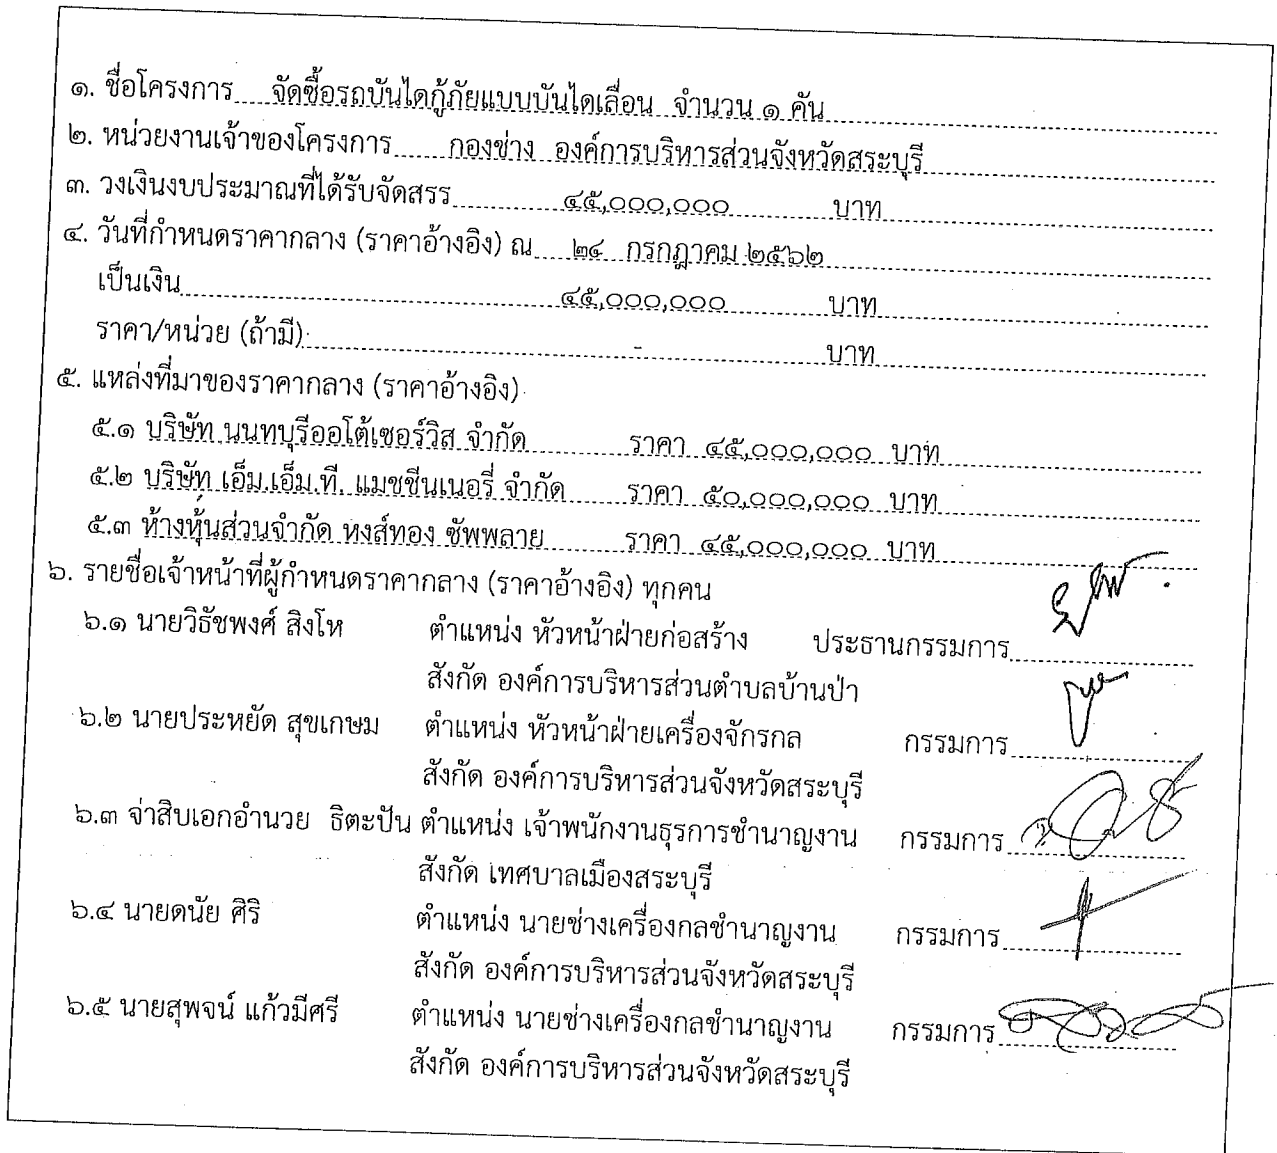 ๑. ชื่อโครงการ จัดซื้อรถบันไดกู้ภัยแบบบันไดเลื่อน จำนวน ๑ คัน
๒. หน่วยงานเจ้าของโครงการ กองช่าง องค์การบริหารส่วนจังหวัดสระบุรี
๓. วงเงินงบประมาณที่ได้รับจัดสรร ๔๕,๐๐๐,๐๐๐ บาท
๔. วันที่กำหนดราคากลาง (ราคาอ้างอิง) ณ ๒๔ กรกฎาคม ๒๕๖๒
เป็นเงิน ๔๕,๐๐๐,๐๐๐ บาท
ราคา/หน่วย (ถ้ามี) - บาท
๕. แหล่งที่มาของราคากลาง (ราคาอ้างอิง)
๕.๑ บริษัท นนทบุรีออโต้เซอร์วิส จำกัด ราคา ๔๕,๐๐๐,๐๐๐ บาท
๕.๒ บริษัท เอ็ม.เอ็ม.ที. แมชชีนเนอรี่ จำกัด ราคา ๕๐,๐๐๐,๐๐๐ บาท
๕.๓ ห้างหุ้นส่วนจำกัด หงส์ทอง ซัพพลาย ราคา ๔๕,๐๐๐,๐๐๐ บาท
๖. รายชื่อเจ้าหน้าที่ผู้กำหนดราคากลาง (ราคาอ้างอิง) ทุกคน
๖.๑ นายวิธัชพงศ์ สิงโห ตำแหน่ง หัวหน้าฝ่ายก่อสร้าง ประธานกรรมการ
สังกัด องค์การบริหารส่วนตำบลบ้านป่า
๖.๒ นายประหยัด สุขเกษม ตำแหน่ง หัวหน้าฝ่ายเครื่องจักรกล กรรมการ
สังกัด องค์การบริหารส่วนจังหวัดสระบุรี
๖.๓ จ่าสิบเอกอำนวย ธิตะปัน ตำแหน่ง เจ้าพนักงานธุรการชำนาญงาน กรรมการ
สังกัด เทศบาลเมืองสระบุรี
๖.๔ นายดนัย ศิริ ตำแหน่ง นายช่างเครื่องกลชำนาญงาน กรรมการ
สังกัด องค์การบริหารส่วนจังหวัดสระบุรี
๖.๕ นายสุพจน์ แก้วมีศรี ตำแหน่ง นายช่างเครื่องกลชำนาญงาน กรรมการ
สังกัด องค์การบริหารส่วนจังหวัดสระบุรี